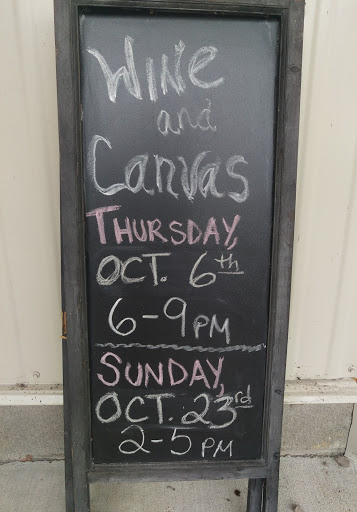 Wine
and
Canvas
THURSDAY,
OCT. 6th
6-9PM
SUNDAY,
OCT. 23rd
2-5PM